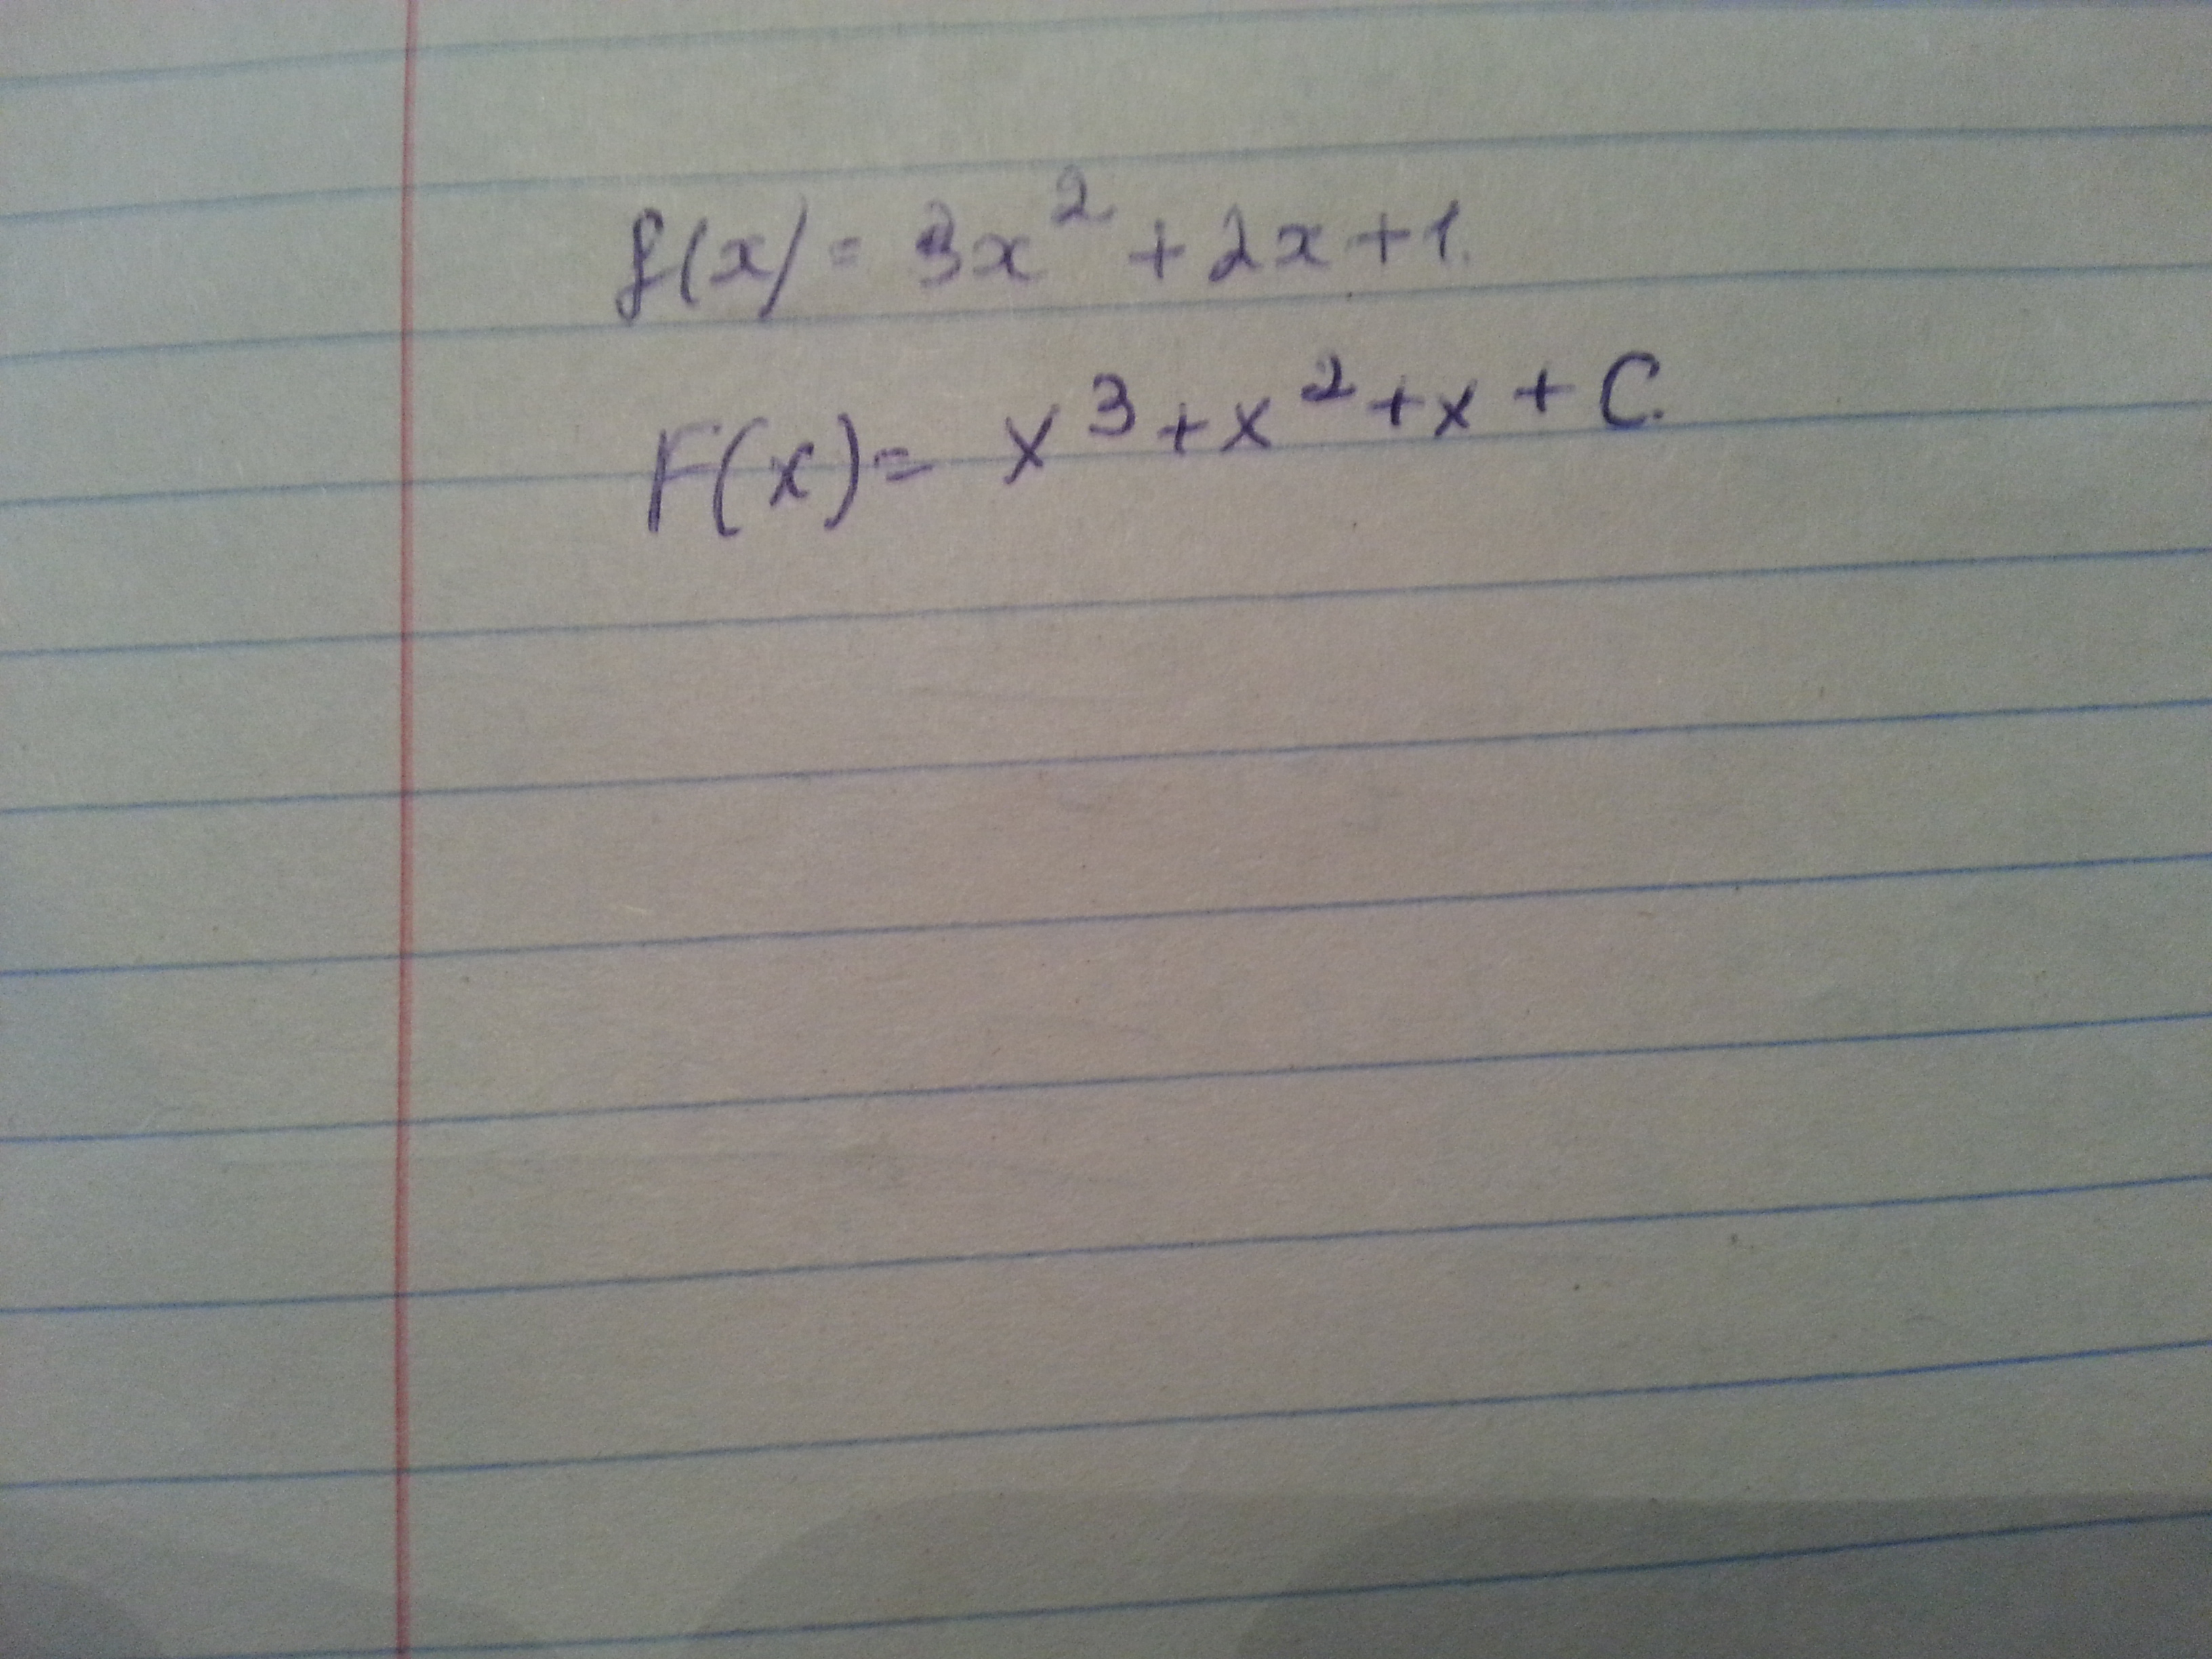 f(x) = 3x² + 2x + 1.
F(x) = x³ + x² + x + C.